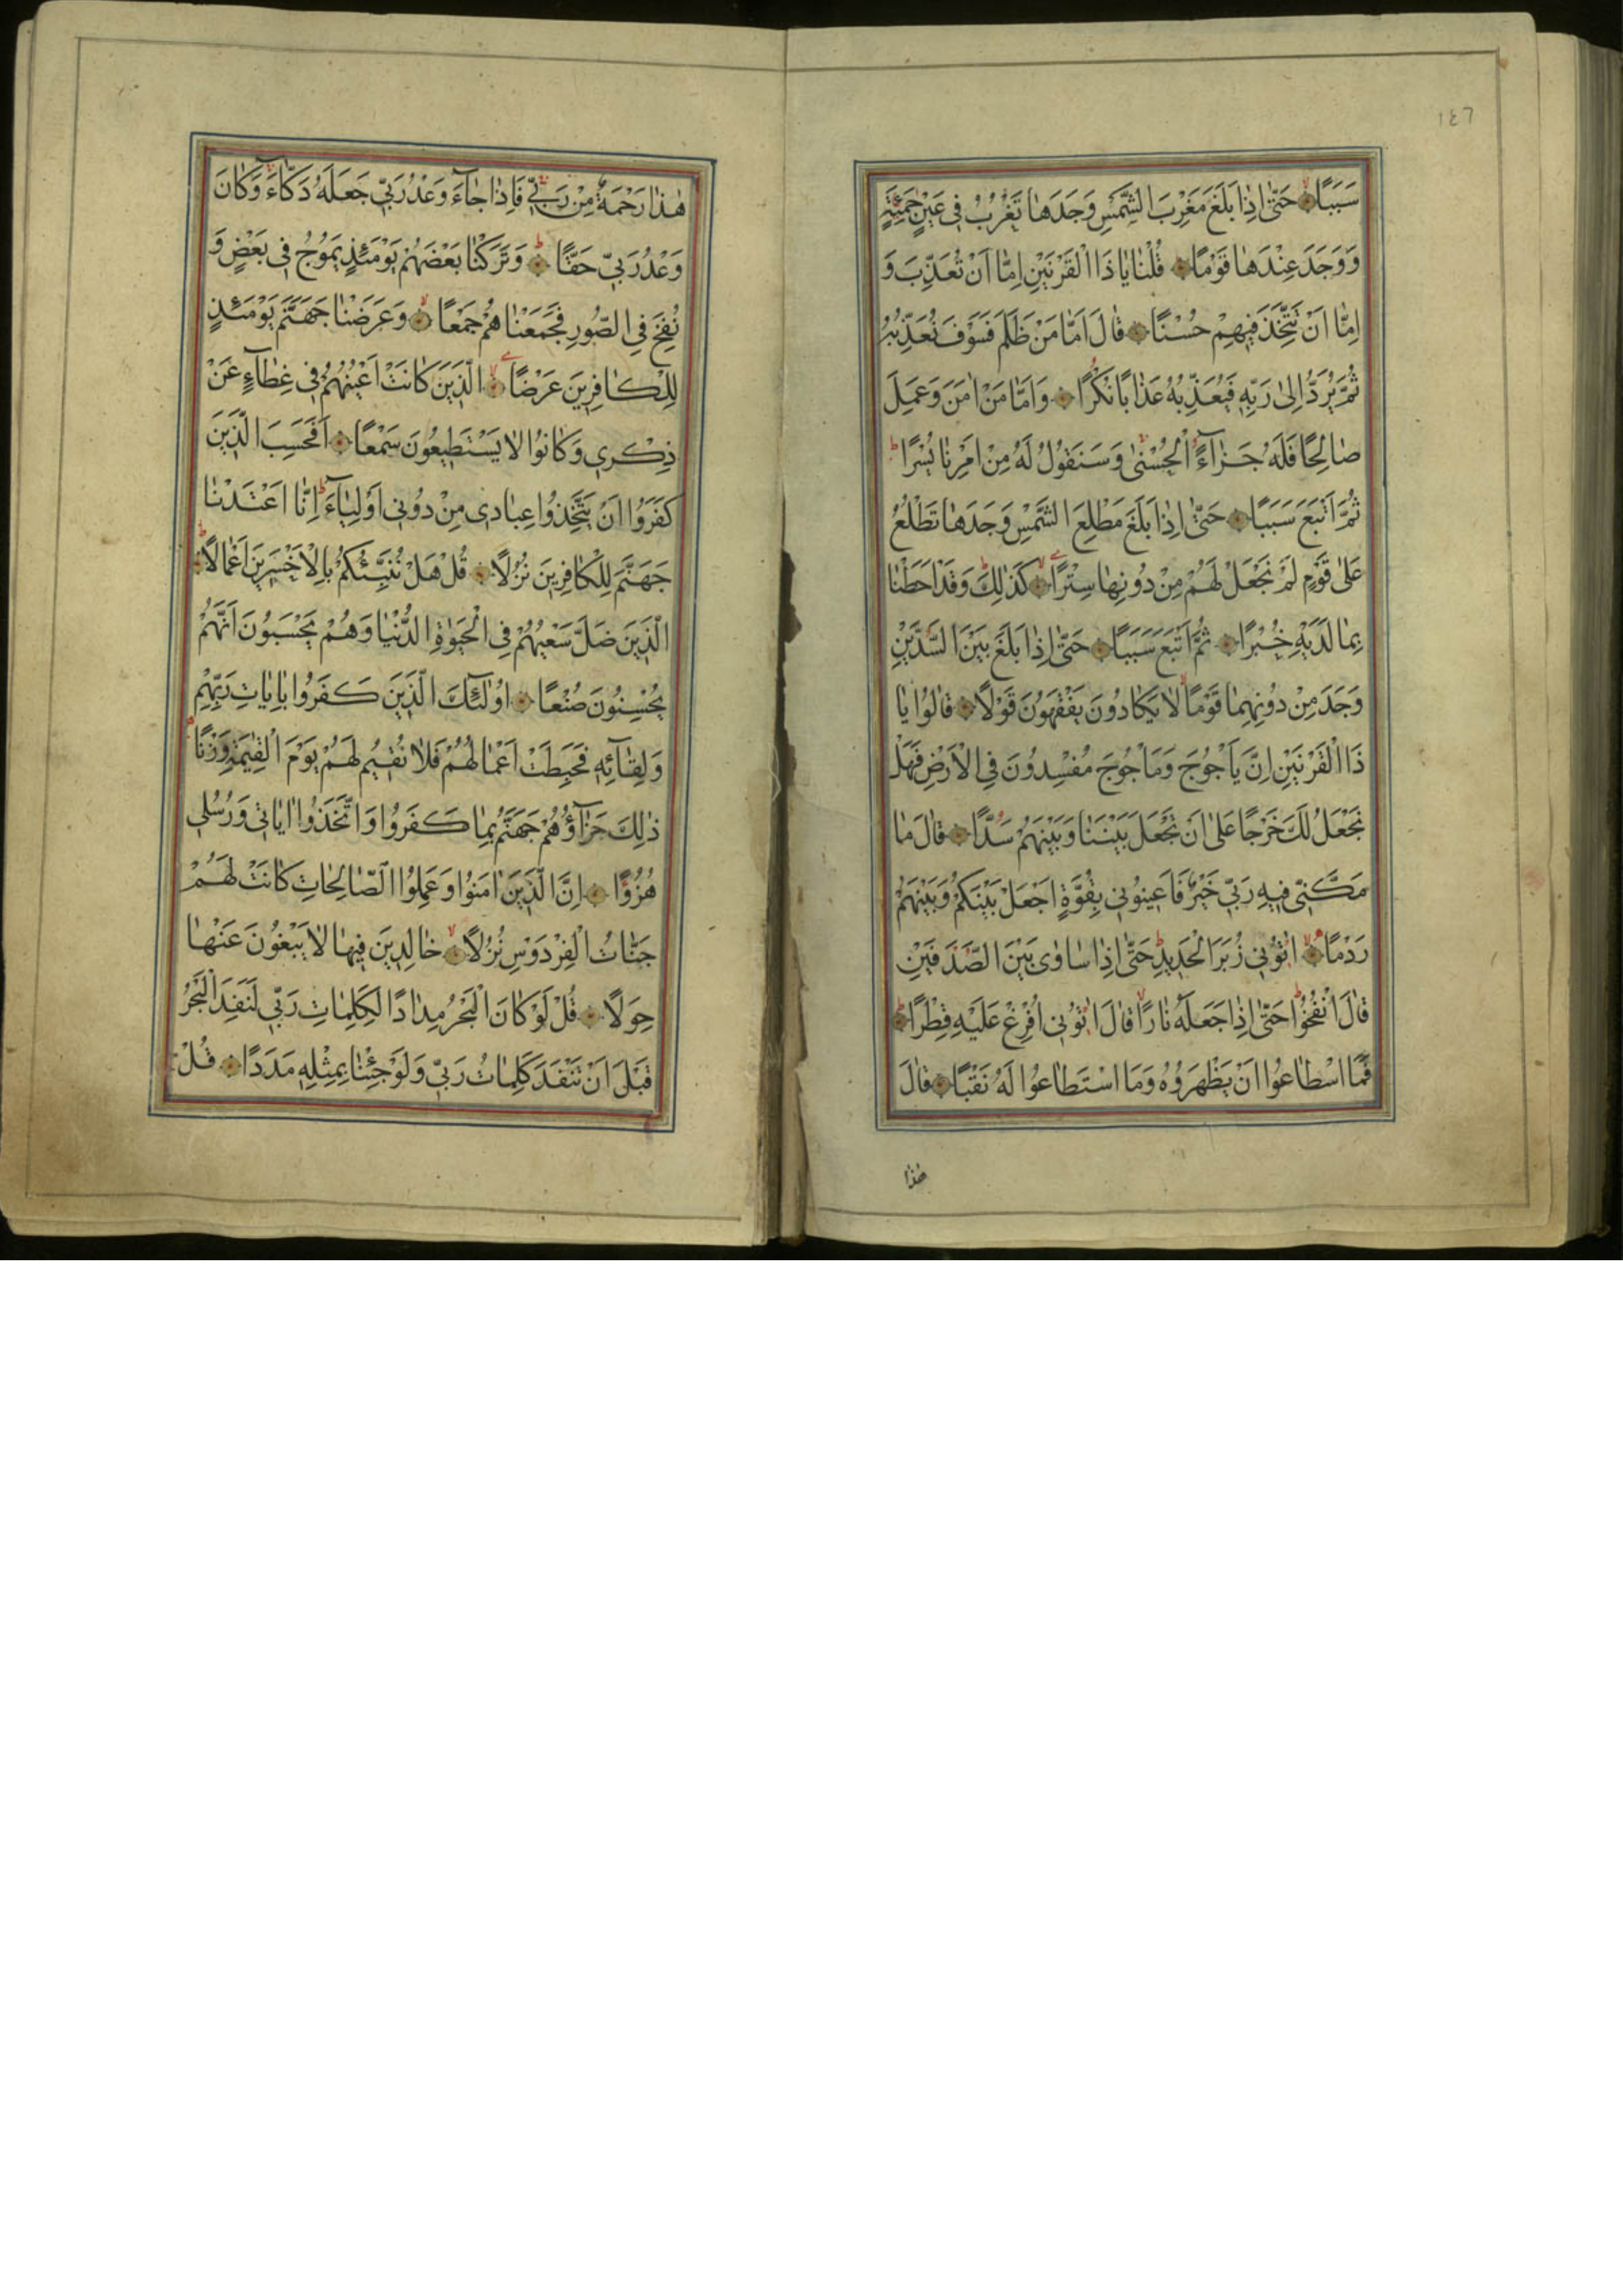 ١٤٦
سَبَبًا حَتّٰى اِذَا بَلَغَ مَغْرِبَ الشَّمْسِ وَجَدَهَا تَغْرُبُ فِي عَيْنٍ حَمِئَةٍ
وَوَجَدَ عِنْدَهَا قَوْمًا قُلْنَا يَا ذَا الْقَرْنَيْنِ اِمَّا اَنْ تُعَذِّبَ وَ
اِمَّا اَنْ تَتَّخِذَ فِيهِمْ حُسْنًا قَالَ اَمَّا مَنْ ظَلَمَ فَسَوْفَ نُعَذِّبُهُ
ثُمَّ يُرَدُّ اِلٰى رَبِّهِ فَيُعَذِّبُهُ عَذَابًا نُكْرًا وَاَمَّا مَنْ اٰمَنَ وَعَمِلَ
صَالِحًا فَلَهُ جَزَاءً الْحُسْنٰى وَسَنَقُولُ لَهُ مِنْ اَمْرِنَا يُسْرًا
ثُمَّ اَتْبَعَ سَبَبًا حَتّٰى اِذَا بَلَغَ مَطْلِعَ الشَّمْسِ وَجَدَهَا تَطْلُعُ
عَلٰى قَوْمٍ لَمْ نَجْعَلْ لَهُمْ مِنْ دُونِهَا سِتْرًا كَذٰلِكَ وَقَدْ اَحَطْنَا
بِمَا لَدَيْهِ خُبْرًا ثُمَّ اَتْبَعَ سَبَبًا حَتّٰى اِذَا بَلَغَ بَيْنَ السَّدَّيْنِ
وَجَدَ مِنْ دُونِهِمَا قَوْمًا لَا يَكَادُونَ يَفْقَهُونَ قَوْلًا قَالُوا يَا
ذَا الْقَرْنَيْنِ اِنَّ يَأْجُوجَ وَمَأْجُوجَ مُفْسِدُونَ فِي الْاَرْضِ فَهَلْ
نَجْعَلُ لَكَ خَرْجًا عَلٰى اَنْ تَجْعَلَ بَيْنَنَا وَبَيْنَهُمْ سَدًّا قَالَ مَا
مَكَّنِّي فِيهِ رَبِّي خَيْرٌ فَاَعِينُونِي بِقُوَّةٍ اَجْعَلْ بَيْنَكُمْ وَبَيْنَهُمْ
رَدْمًا اٰتُونِي زُبَرَ الْحَدِيدِ حَتّٰى اِذَا سَاوٰى بَيْنَ الصَّدَفَيْنِ
قَالَ انْفُخُوا حَتّٰى اِذَا جَعَلَهُ نَارًا قَالَ اٰتُونِي اُفْرِغْ عَلَيْهِ قِطْرًا
فَمَا اسْطَاعُوا اَنْ يَظْهَرُوهُ وَمَا اسْتَطَاعُوا لَهُ نَقْبًا قَالَ
هٰذَا
هٰذَا رَحْمَةٌ مِنْ رَبِّي فَاِذَا جَاءَ وَعْدُ رَبِّي جَعَلَهُ دَكَّاءَ وَكَانَ
وَعْدُ رَبِّي حَقًّا وَتَرَكْنَا بَعْضَهُمْ يَوْمَئِذٍ يَمُوجُ فِي بَعْضٍ وَ
نُفِخَ فِي الصُّورِ فَجَمَعْنَاهُمْ جَمْعًا وَعَرَضْنَا جَهَنَّمَ يَوْمَئِذٍ
لِلْكَافِرِينَ عَرْضًا الَّذِينَ كَانَتْ اَعْيُنُهُمْ فِي غِطَاءٍ عَنْ
ذِكْرِي وَكَانُوا لَا يَسْتَطِيعُونَ سَمْعًا اَفَحَسِبَ الَّذِينَ
كَفَرُوا اَنْ يَتَّخِذُوا عِبَادِي مِنْ دُونِي اَوْلِيَاءَ اِنَّا اَعْتَدْنَا
جَهَنَّمَ لِلْكَافِرِينَ نُزُلًا قُلْ هَلْ نُنَبِّئُكُمْ بِالْاَخْسَرِينَ اَعْمَالًا
الَّذِينَ ضَلَّ سَعْيُهُمْ فِي الْحَيٰوةِ الدُّنْيَا وَهُمْ يَحْسَبُونَ اَنَّهُمْ
يُحْسِنُونَ صُنْعًا اُولٰئِكَ الَّذِينَ كَفَرُوا بِاٰيَاتِ رَبِّهِمْ
وَلِقَائِهِ فَحَبِطَتْ اَعْمَالُهُمْ فَلَا نُقِيمُ لَهُمْ يَوْمَ الْقِيٰمَةِ وَزْنًا
ذٰلِكَ جَزَاؤُهُمْ جَهَنَّمُ بِمَا كَفَرُوا وَاتَّخَذُوا اٰيَاتِي وَرُسُلِي
هُزُوًا اِنَّ الَّذِينَ اٰمَنُوا وَعَمِلُوا الصَّالِحَاتِ كَانَتْ لَهُمْ
جَنَّاتُ الْفِرْدَوْسِ نُزُلًا خَالِدِينَ فِيهَا لَا يَبْغُونَ عَنْهَا
حِوَلًا قُلْ لَوْ كَانَ الْبَحْرُ مِدَادًا لِكَلِمَاتِ رَبِّي لَنَفِدَ الْبَحْرُ
قَبْلَ اَنْ تَنْفَدَ كَلِمَاتُ رَبِّي وَلَوْ جِئْنَا بِمِثْلِهِ مَدَدًا قُلْ